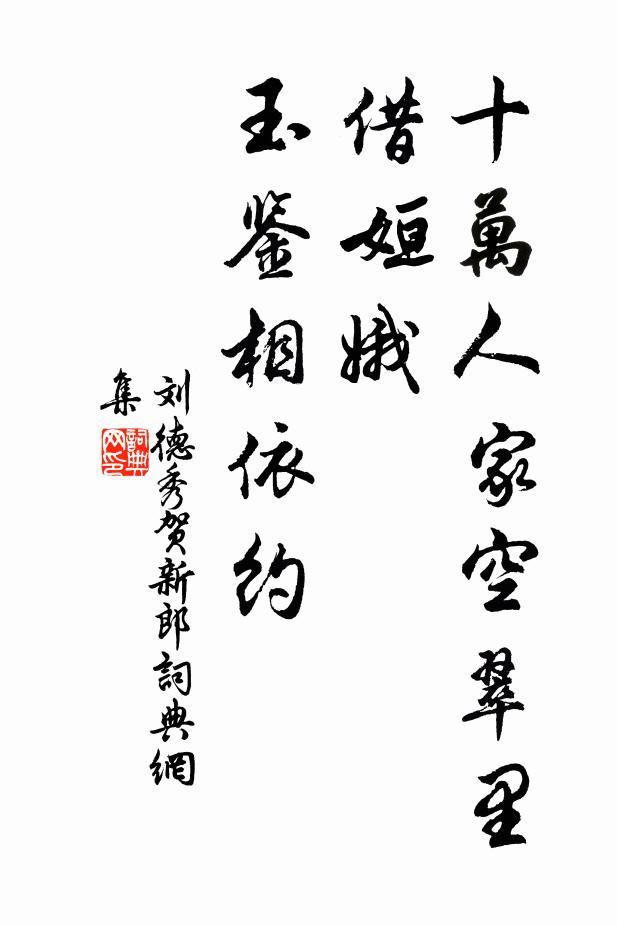 十萬人家空翠里
借姮娥
玉鉴相依約
刘德秀贺新郎詞典網
集
詞典
网印